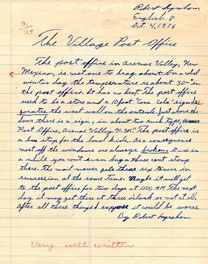 Robert Ingraham
English 8
Oct. 4, 1956
The Village Post Office
The post office in Arenas Valley, New
Mexico, is not one to brag about. On a cold
winter day the temperature is about 30° in
the post office. It has no heat. The post office
used to be a store and a 10 foot "Coca Cola" sign
the west wall on the outside. Just above the
door there is a sign, in about two inch type,
Post Office, Arenas Valley, N.M. The post office is
a bus stop for the local kids. As a consequence
most of the windows are always broken. Once in
a while you can't even buy a three cent stamp
there. The mail never gets there six times in
succession at the same time. Maybe it will get
to the post office for two days at 11:00 A.M. The next
day it may get there at three o'clock or not at all.
After all these things I suppose it could be worse.
By Robert Ingraham
Very well written